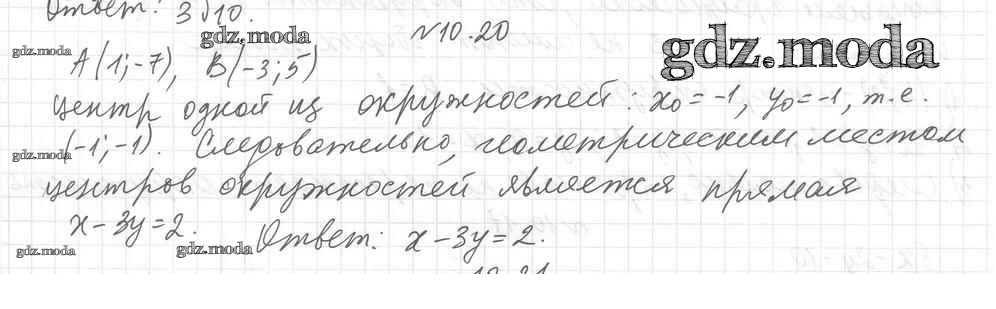 Ответ: 3√10.
gdz.moda
№10.20
gdz.moda
gdz.moda
A(1;-7), B(-3;5)
Центр одной из окружностей: x₀=-1, y₀=-1, т.е.
gdz.moda
(-1;-1). Следовательно, геометрическим местом
центров окружностей является прямая
x-3y=2.
Ответ: x-3y=2.
gdz.moda
gdz.moda
10.21